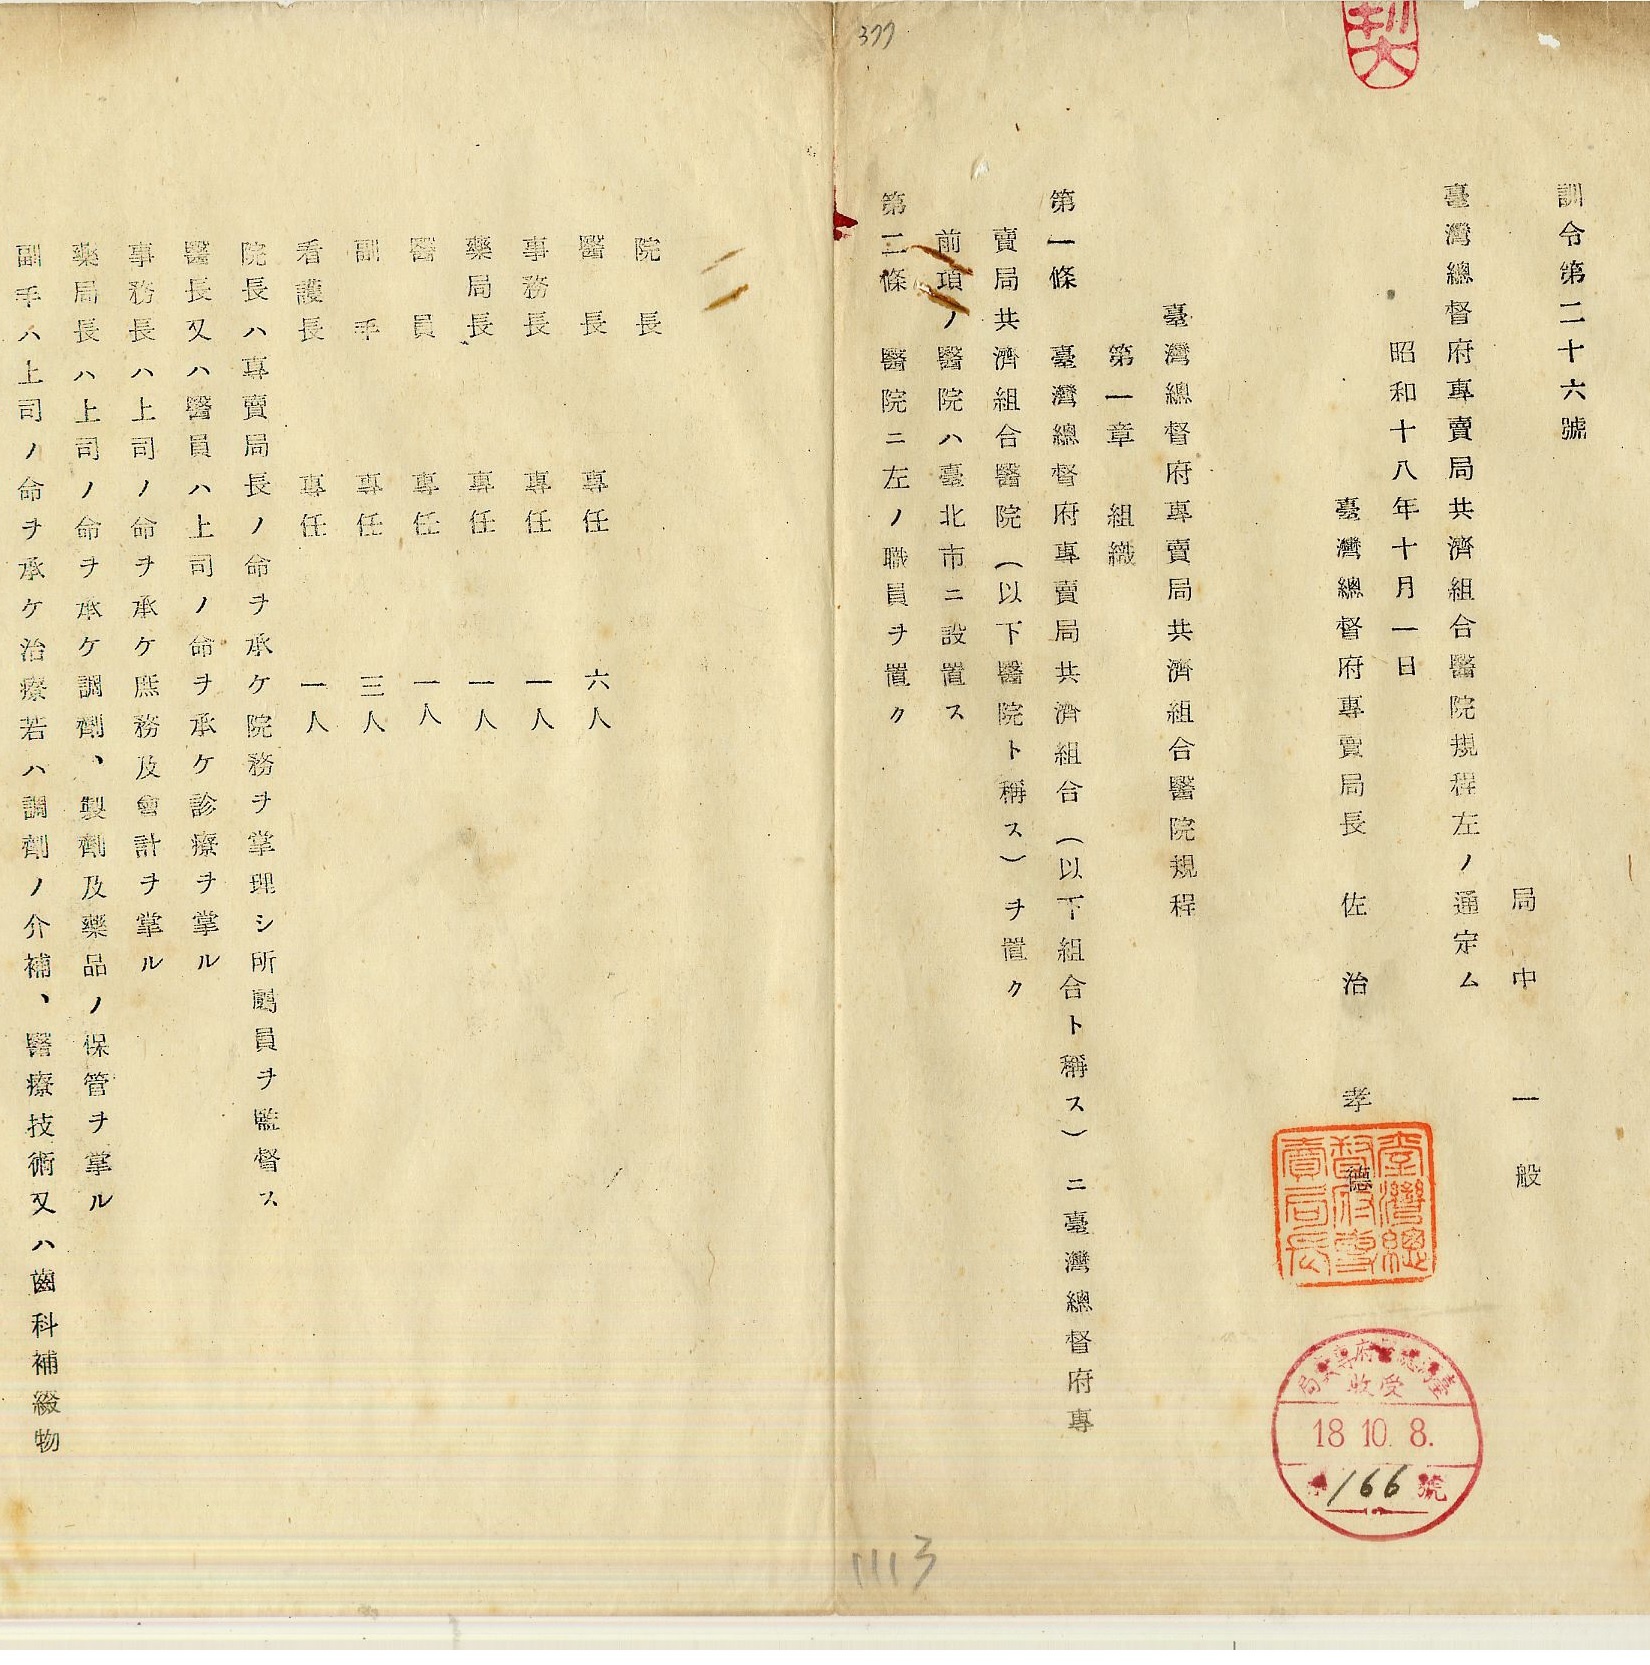 377
訓令第二十六號
局中一般
臺灣總督府專賣局共濟組合醫院規程左ノ通定ム
昭和十八年十月一日
臺灣總督府專賣局長 佐治孝德
臺灣總督府專賣局長
收受
18 10. 8.
166 號
臺灣總督府專賣局共濟組合醫院規程
第一章 組織
第一條 臺灣總督府專賣局共濟組合(以下組合ト稱ス)ニ臺灣總督府專
賣局共濟組合醫院(以下醫院ト稱ス)ヲ置ク
前項ノ醫院ハ臺北市ニ設置ス
第二條 醫院ニ左ノ職員ヲ置ク
1113
院長
醫長 專任 六人
事務長 專任 一人
藥局長 專任 一人
醫員 專任 一人
副手 專任 三人
看護長 專任 一人
院長ハ專賣局長ノ命ヲ承ケ院務ヲ掌理シ所屬員ヲ監督ス
醫長又ハ醫員ハ上司ノ命ヲ承ケ診療ヲ掌ル
事務長ハ上司ノ命ヲ承ケ庶務及會計ヲ掌ル
藥局長ハ上司ノ命ヲ承ケ調劑、製劑及藥品ノ保管ヲ掌ル
副手ハ上司ノ命ヲ承ケ治療若ハ調劑ノ介補、醫療技術又ハ齒科補綴物